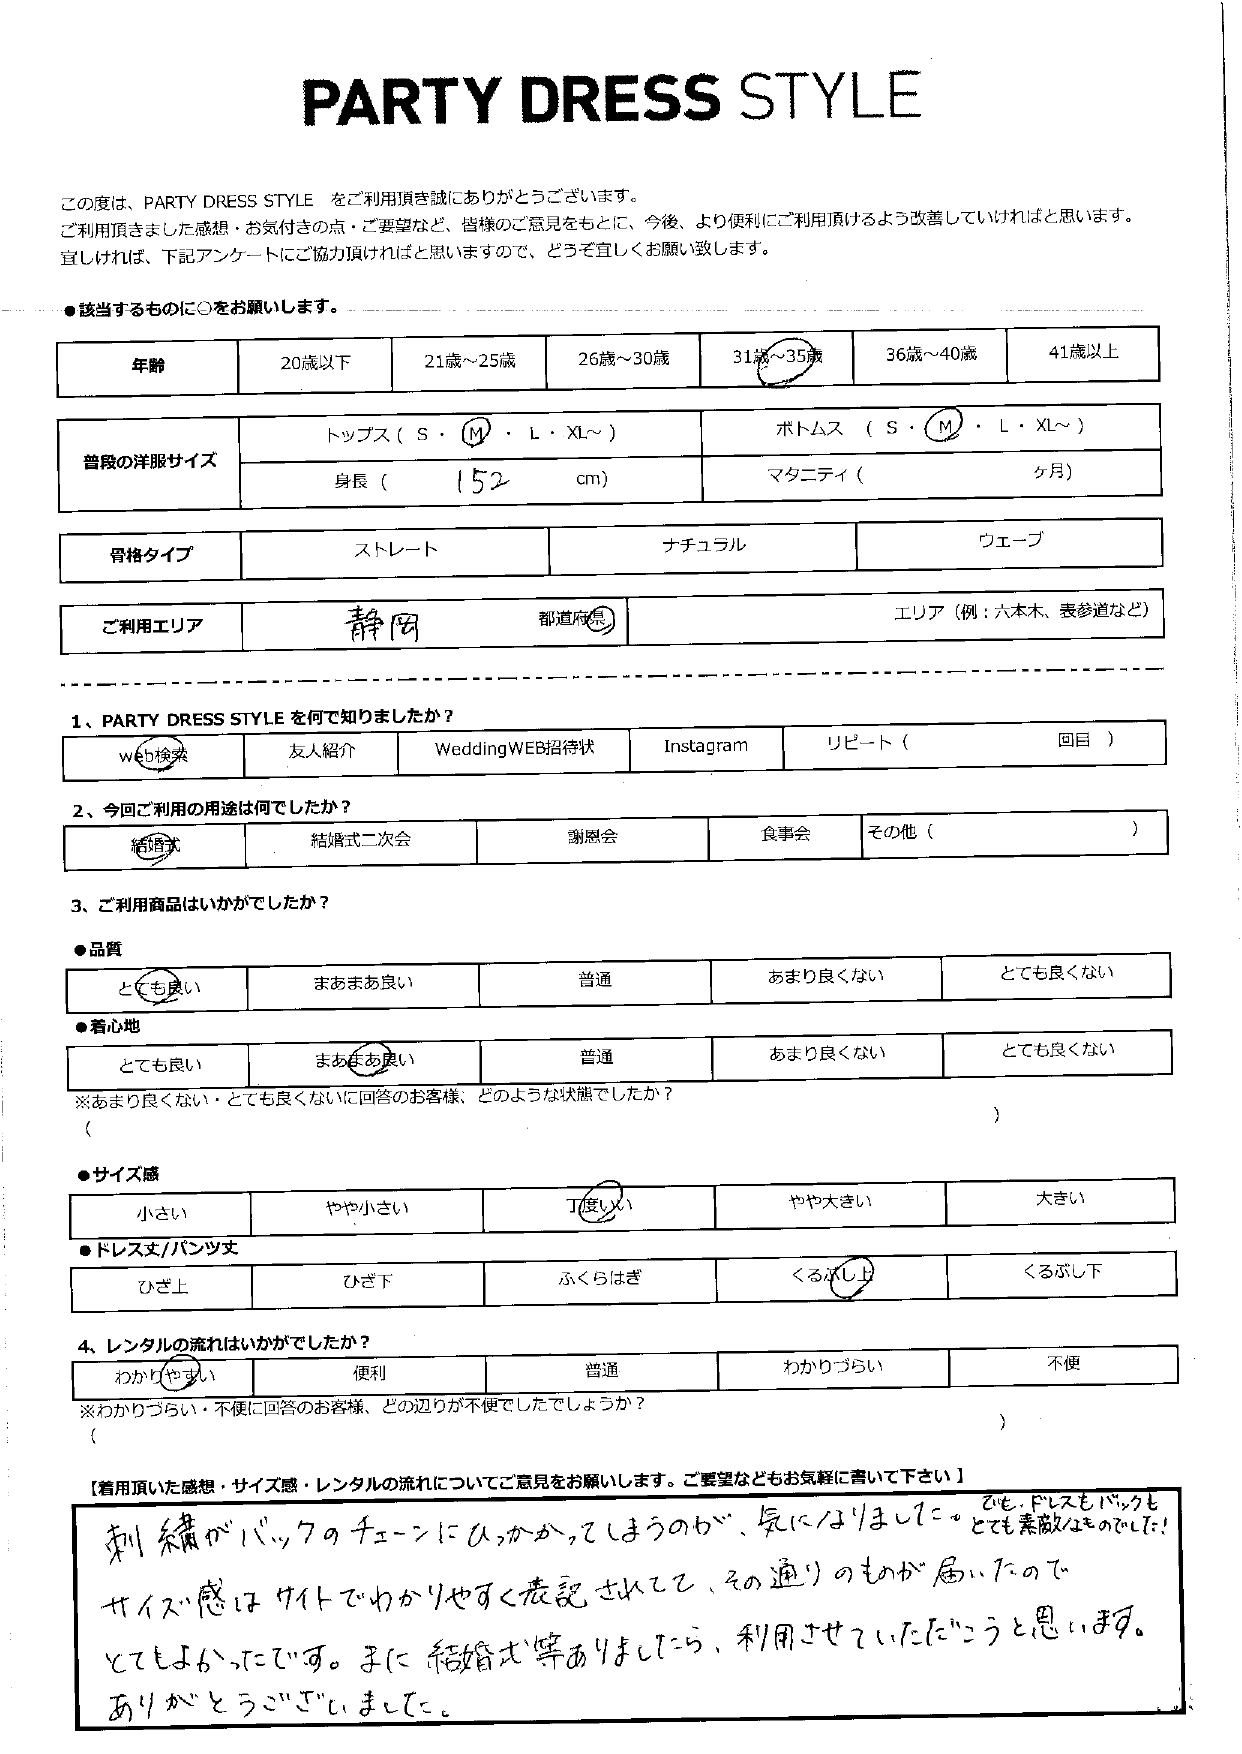 PARTY DRESS STYLE
この度は、PARTY DRESS STYLE をご利用頂き誠にありがとうございます。
ご利用頂きました感想・お気付きの点・ご要望など、皆様のご意見をもとに、今後、より便利にご利用頂けるよう改善していければと思います。
宜しければ、下記アンケートにご協力頂ければと思いますので、どうぞ宜しくお願い致します。
●該当するものに○をお願いします。
年齢 20歳以下 21歳～25歳 26歳～30歳 31歳～35歳 36歳～40歳 41歳以上
普段の洋服サイズ トップス ( S ・ M ・ L ・ XL～ ) ボトムス ( S ・ M ・ L ・ XL～ )
身長 ( 152 cm) マタニティ ( ヶ月)
骨格タイプ ストレート ナチュラル ウェーブ
ご利用エリア 静岡 都道府県 エリア（例：六本木、表参道など）
1、PARTY DRESS STYLE を何で知りましたか？
web検索 友人紹介 WeddingWEB招待状 Instagram リピート ( 回目 )
2、今回ご利用の用途は何でしたか？
結婚式 結婚式二次会 謝恩会 食事会 その他 ( )
3、ご利用商品はいかがでしたか？
●品質
とても良い まあまあ良い 普通 あまり良くない とても良くない
●着心地
とても良い まあまあ良い 普通 あまり良くない とても良くない
※あまり良くない・とても良くないに回答のお客様、どのような状態でしたか？
( )
●サイズ感
小さい やや小さい 丁度いい やや大きい 大きい
●ドレス丈/パンツ丈
ひざ上 ひざ下 ふくらはぎ くるぶし上 くるぶし下
4、レンタルの流れはいかがでしたか？
わかりやすい 便利 普通 わかりづらい 不便
※わかりづらい・不便に回答のお客様、どの辺りが不便でしたでしょうか？
( )
【着用頂いた感想・サイズ感・レンタルの流れについてご意見をお願いします。ご要望などもお気軽に書いて下さい 】
刺繍がバックのチェーンにひっかかってしまうのが、気になりました。でも、ドレスもバックも
とても素敵なものでした!
サイズ感はサイトでわかりやすく表記されてて、その通りのものが届いたので
とてもよかったです。また結婚式等ありましたら、利用させていただこうと思います。
ありがとうございました。